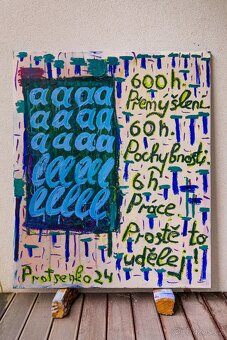 aaaa
aaaa
aaaa
lllll
lllll
600h.
Přemýšlení.
60h.
Pochybností.
6h.
Práce
Prostě to
udělej!
Protsenko 24